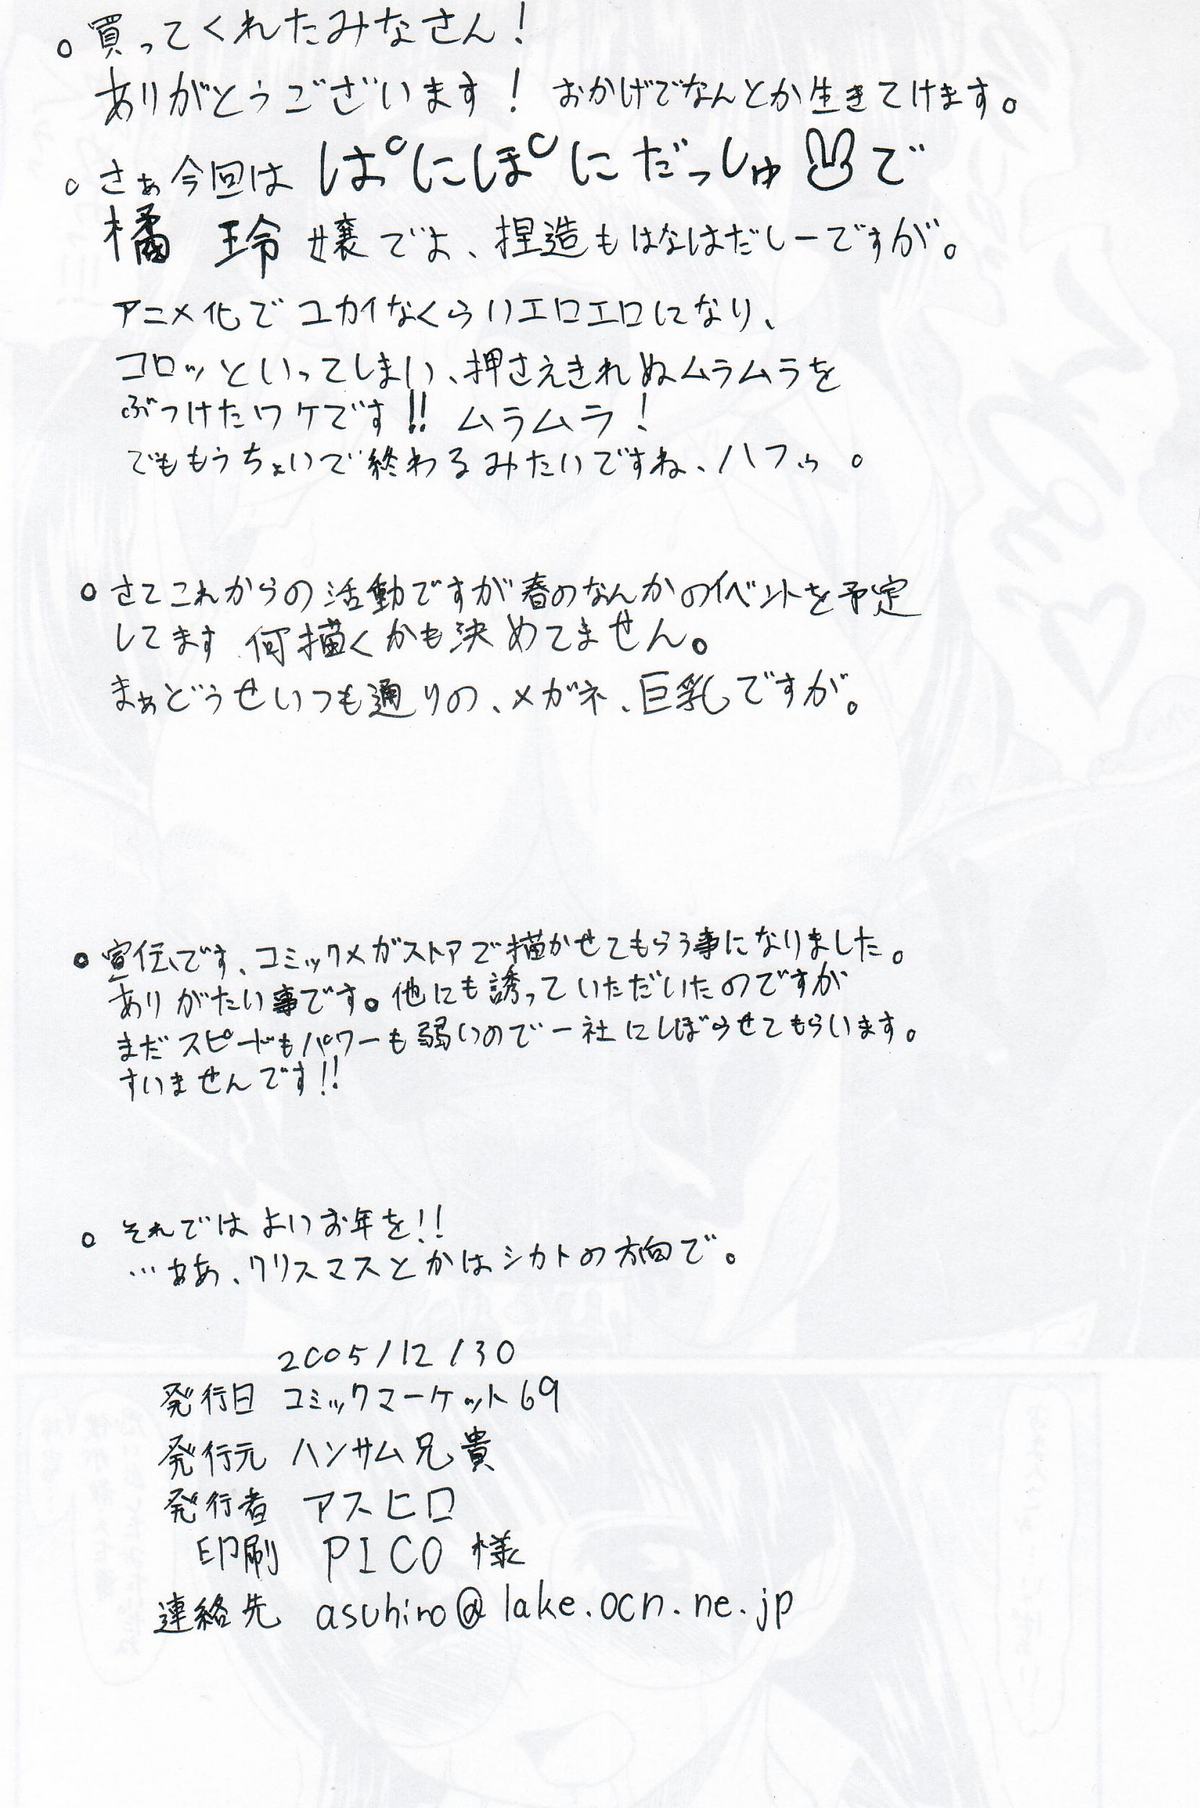 ○買ってくれたみなさん!
ありがとうございます! おかげでなんとか生きてけます。
○さぁ今回は ぱにぽにだっしゅで
橘 玲 嬢でよ、捏造もはなはだしーですが。
アニメ化でユカイなくらいエロエロになり、
コロッといってしまい、押さえきれぬムラムラを
ぶつけたワケです!! ムラムラ!
でももうちょいで終わるみたいですね、ハフゥ。
○さてこれからの活動ですが春のなんかのイベントを予定
してます 何描くかも決めてません。
まぁどうせいつも通りの、メガネ、巨乳ですが。
○宣伝です、コミックメガストアで描かせてもらう事になりました。
ありがたい事です。他にも誘っていただいたのですが
まだスピードもパワーも弱いので一社にしぼらせてもらいます。
すいませんです!!
○それではよいお年を!!
…ああ、クリスマスとかはシカトの方向で。
2005/12/30
発行日 コミックマーケット69
発行元 ハンサム兄貴
発行者 アスヒロ
印刷 PICO 様
連絡先 asuhiro@lake.ocn.ne.jp